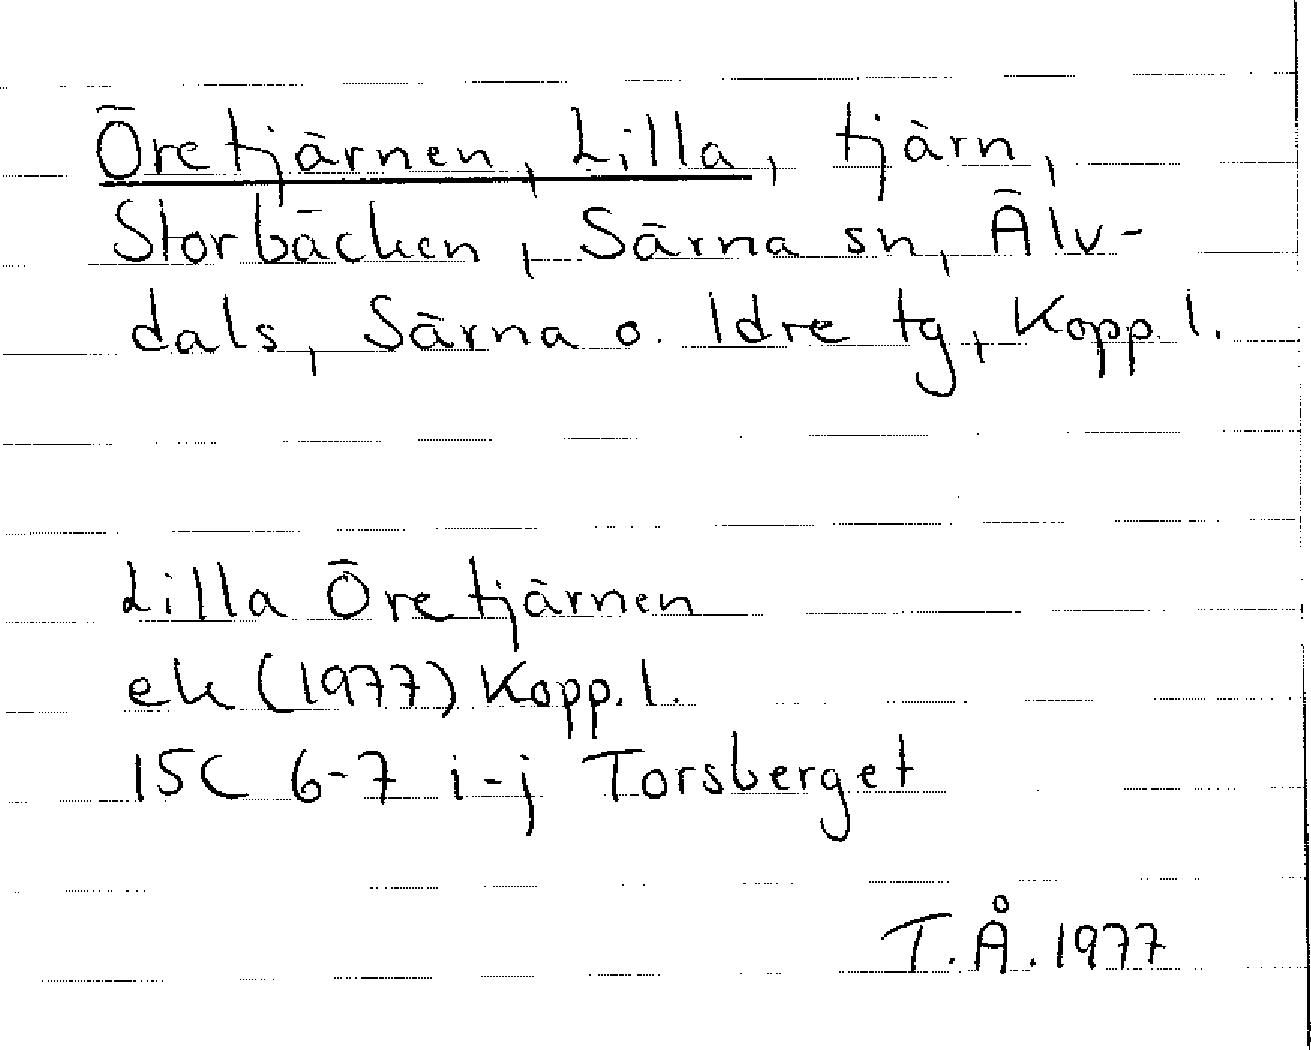 Öretjärnen, Lilla, tjärn,
Storbäcken, Särna sn, Älv-
dals, Särna o. Idre tg, Kopp. l.
Lilla Öretjärnen
ek (1977) Kopp. l.
15C 6-7 i-j Torsberget
T.Å. 1977